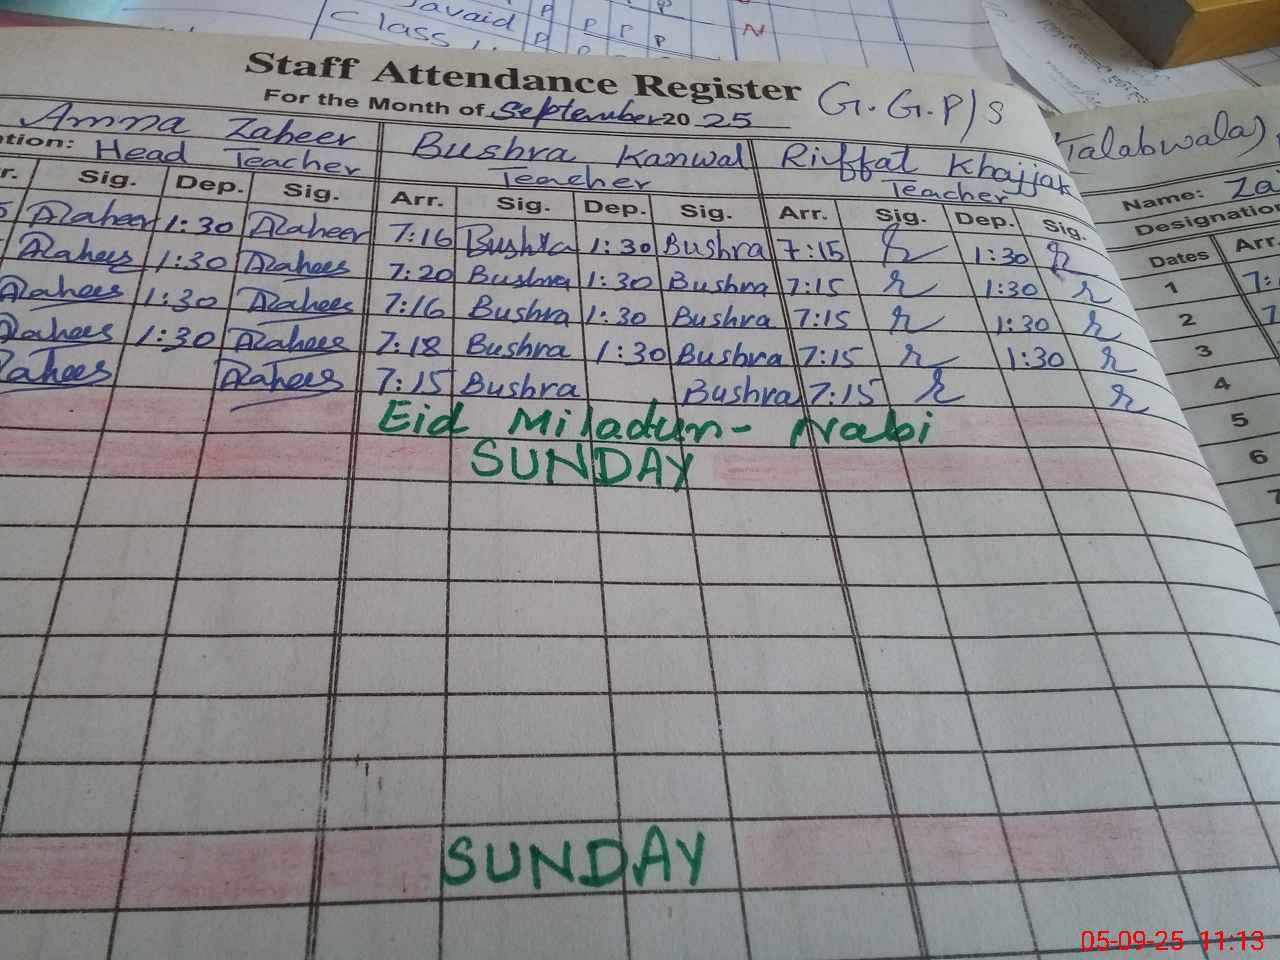 Javaid P P P P
Class P P P N
Staff Attendance Register G.G.P/S
For the Month of September 2025
Talabwala
Amna Zaheer Bushra Kanwal Riffat Khajjak
Head Teacher Teacher Teacher
Sig. Dep. Sig. Arr. Sig. Dep. Sig. Arr. Sig. Dep. Sig.
AZaheer 1:30 AZaheer 7:16 Bushra 1:30 Bushra 7:15 r 1:30 r
AZahees 1:30 AZahees 7:20 Bushra 1:30 Bushra 7:15 r 1:30 r
AZahees 1:30 AZahees 7:16 Bushra 1:30 Bushra 7:15 r 1:30 r
AZahees 1:30 AZahees 7:18 Bushra 1:30 Bushra 7:15 r 1:30 r
AZahees AZahees 7:15 Bushra Bushra 7:15 r r
Eid Miladun-Nabi
SUNDAY
SUNDAY
Name: Za
Designation
Dates Arr.
1 7:
2 7
3
4
5
6
7
05-09-25 11:13